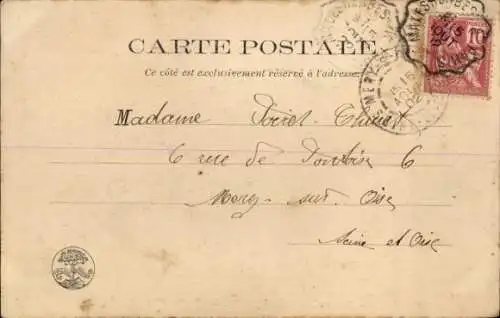 CARTE POSTALE
Ce côté est exclusivement réservé à l'adresse
Madame Poiret-Thuret
6 rue de Pontoise 6
Mery sur Oise
Seine et Oise
10